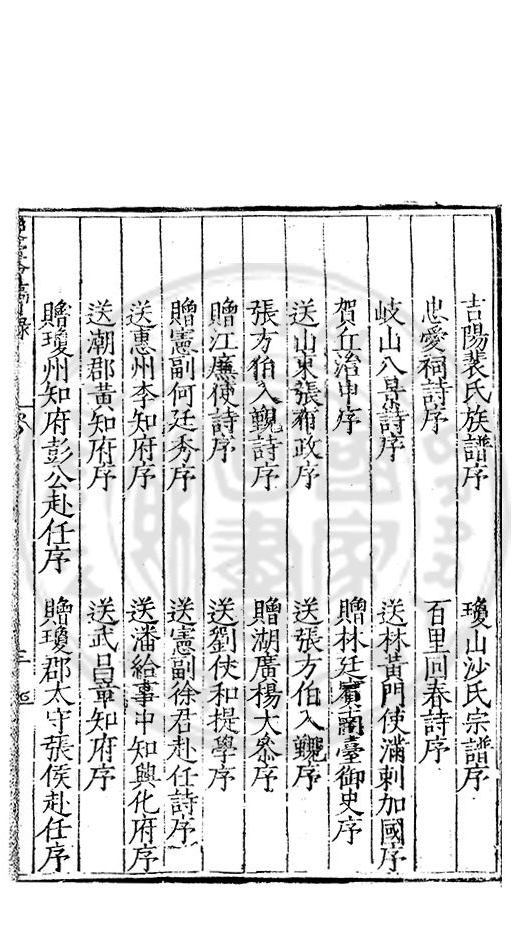 吉陽裴氏族譜序 瓊山沙氏宗譜序
忠愛祠詩序 百里回春詩序
岐山八景詩序 送林黃門使滿剌加國序
賀丘治中序 贈林廷賓蘭臺御史序
送山東張布政序 送張方伯入覲序
張方伯入覲詩序 贈湖廣楊大參序
贈江廉使詩序 送劉侠和提學序
贈憲副何廷秀序 送憲副徐君赴任詩序
送惠州李知府序 送潘給事中知興化府序
送潮郡黃知府序 送武昌章知府序
贈瓊州知府彭公赴任序 贈瓊郡太守張侯赴任序